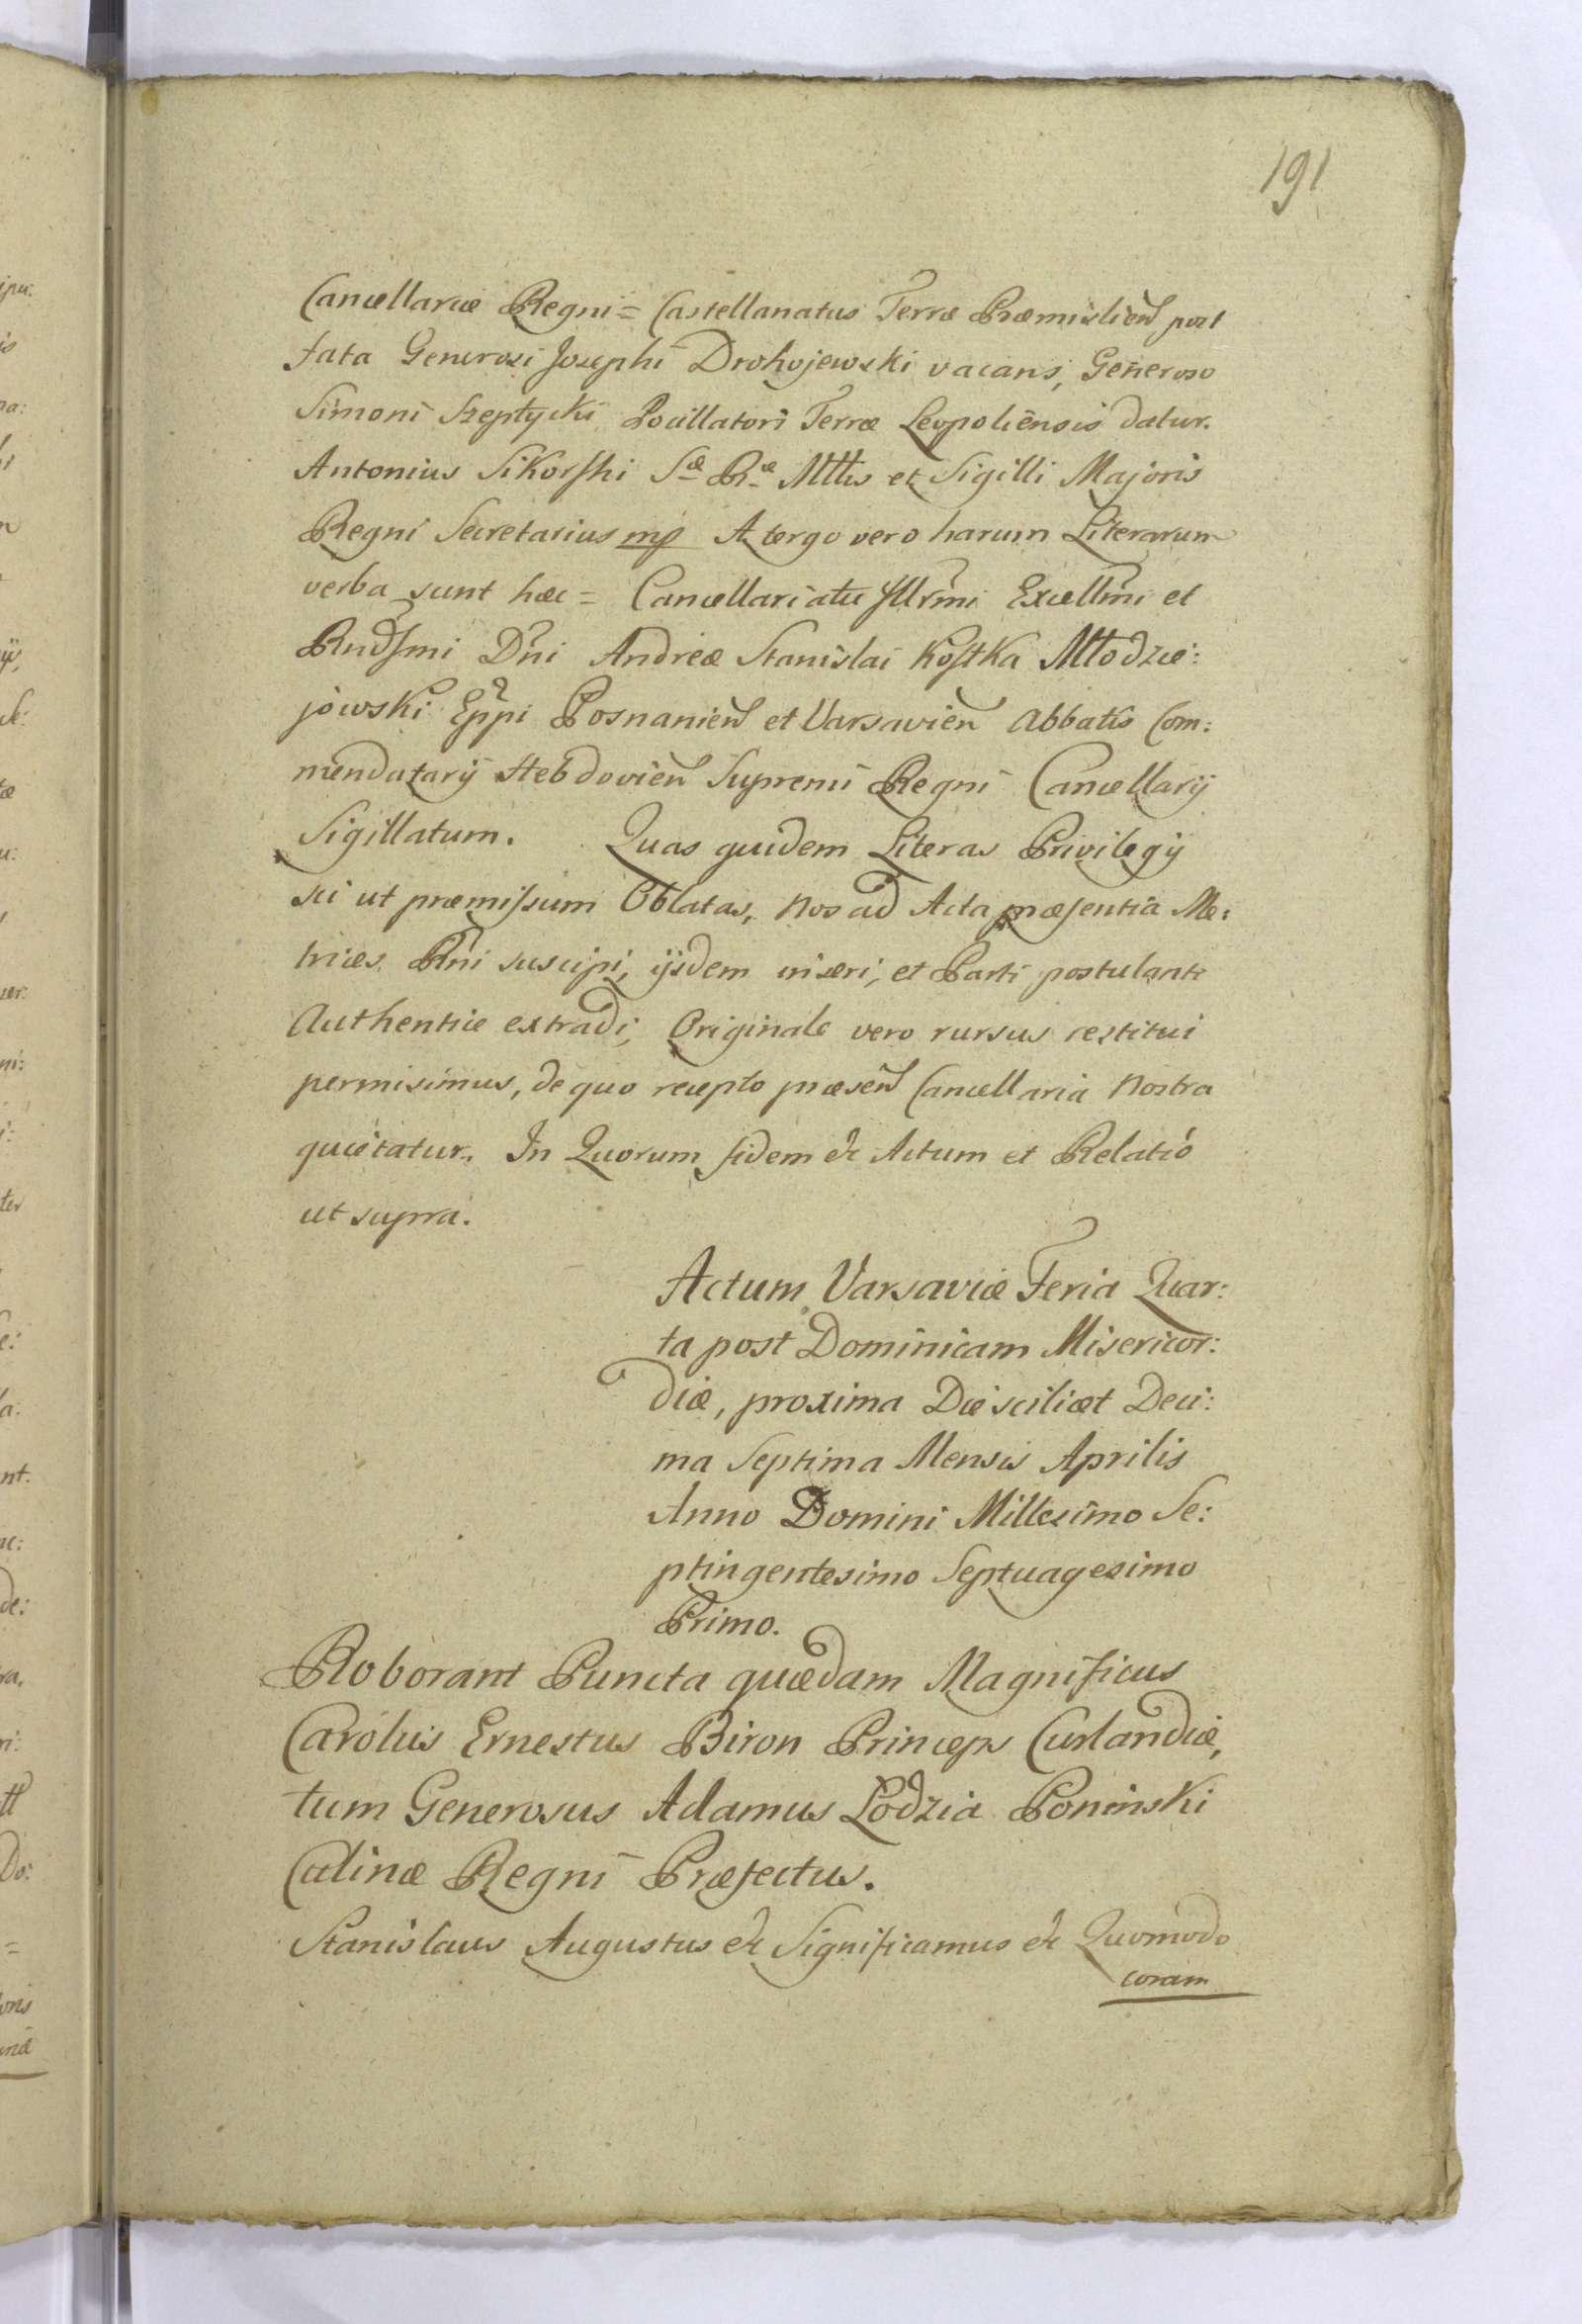 191
Cancellariæ Regni = Castellanatus Terræ Præmislien̄ post
fata Generosi Josephi Drohojewski vacans, Generoso
Simoni Szeptycki Pocillatori Terræ Leopoliensis datur.
Antonius Sikorski Sæ Ræ Mttis et Sigilli Majoris
Regni Secretarius mp A tergo vero harum Literarum
verba sunt hæc = Cancellariatu Jllrmi Excellmi et
Rndsmi Dni Andreæ Stanislai Kostka Młodzie:
jowski Eppi Posnanien̄ et Varsavien̄ Abbatis Com:
mendatarij Hebdovien̄ Supremi Regni Cancellarij
Sigillatum. Quas quidem Literas Privilegij
sci ut præmissum Oblatas, Nos ad Acta præsentia Me:
trices Rni suscipi, ijsdem inseri, et Parti postulanti
Authentice extradi, Originale vero rursus restitui
permisimus, de quo recepto præsen̄ Cancellaria Nostra
quietatur. In Quorum fidem &c Actum et Relatio
ut supra.
Actum Varsaviæ Feria Quar:
ta post Dominicam Misericor:
diæ, proxima Die scilicet Deci:
ma Septima Mensis Aprilis
Anno Domini Millesimo Se:
ptingentesimo Septuagesimo
Primo.
Roborant Puncta quædam Magnificus
Carolus Ernestus Biron Princeps Curlandiæ,
tum Generosus Adamus Lodzia Poninski
Culinæ Regni Præfectus.
Stanislaus Augustus &c Significamus &c Quomodo
coram